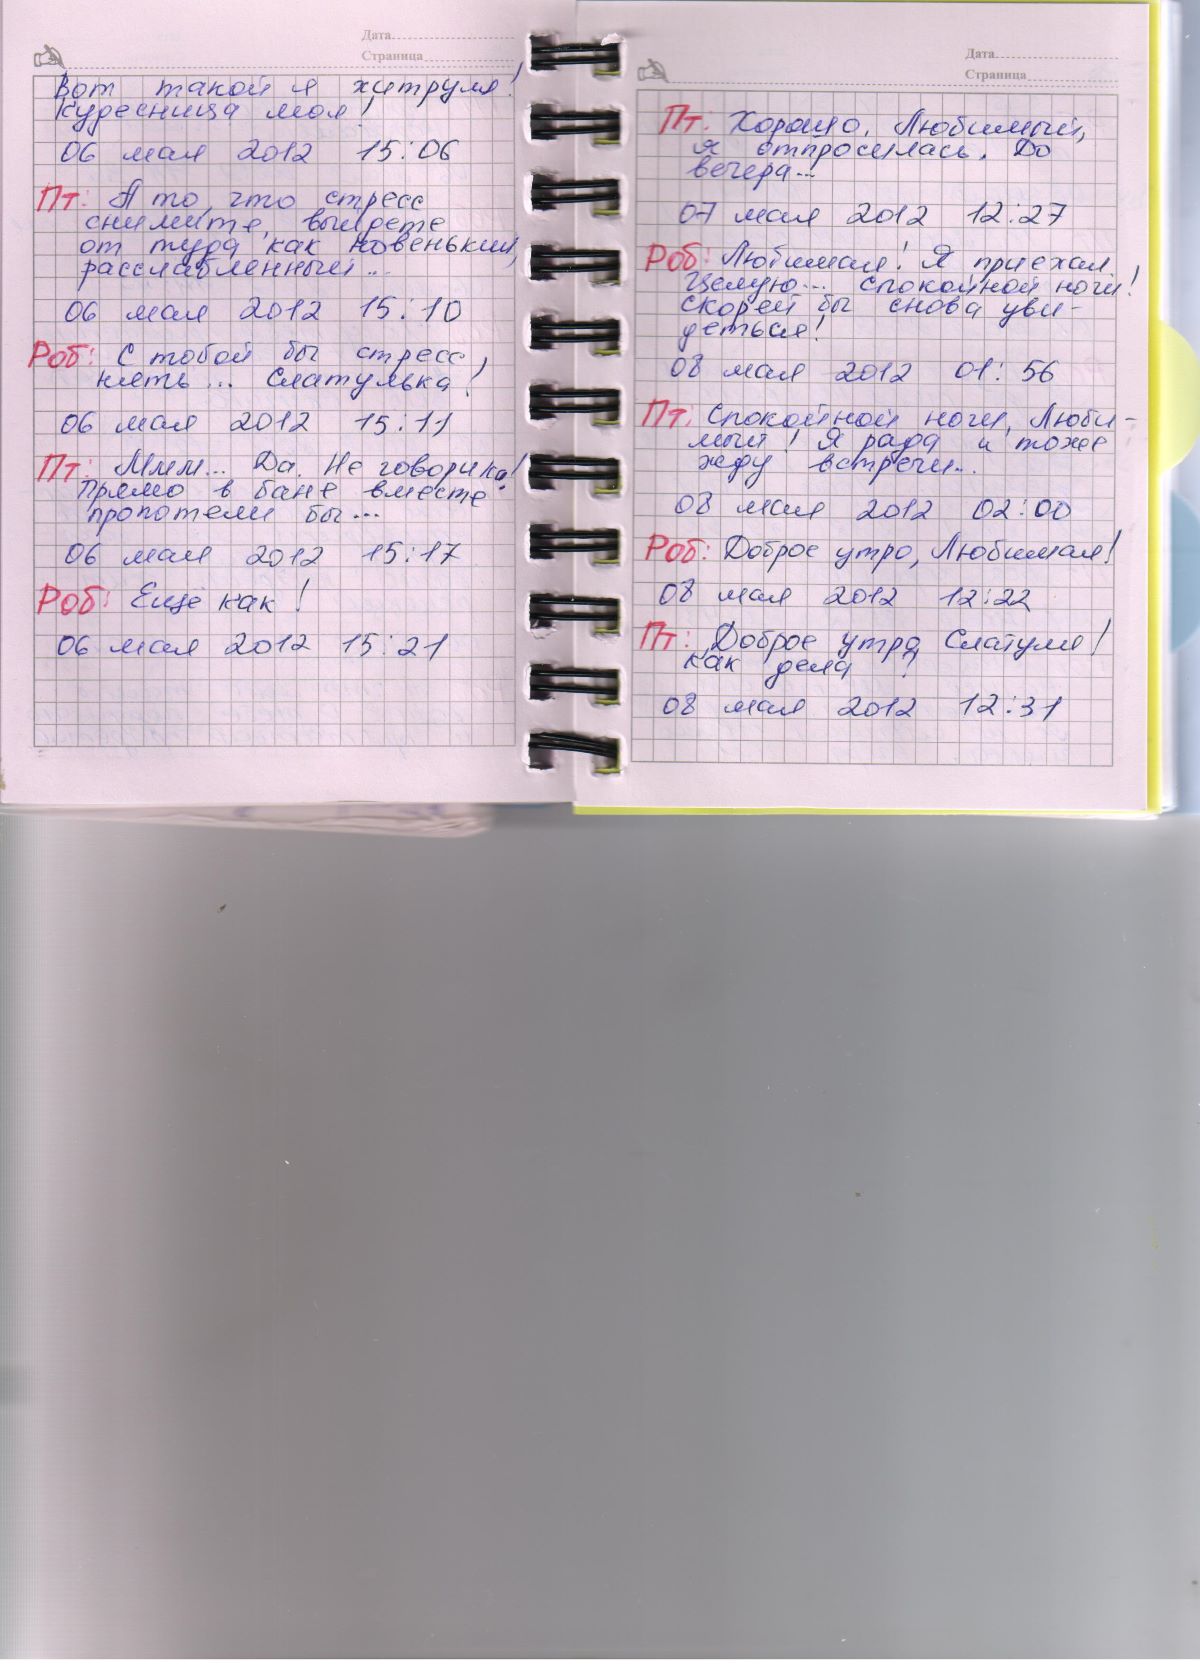 Дата
Страница
Вот такой я хитруля!
Кудесница моя!
06 мая 2012 15:06
Пт: А то, что стресс
снимите, выйдете
от туда как новенький,
расслабленный...
06 мая 2012 15:10
Роб: С тобой бы стресс
нять... Слатулька!
06 мая 2012 15:11
Пт: Ммм... Да. Не говорика!
Прямо в бане вместе
пропотели бы...
06 мая 2012 15:17
Роб: Ещё как!
06 мая 2012 15:21
Дата
Страница
Пт: Хорошо, Любимый,
я отпросилась. До
вечера...
07 мая 2012 12:27
Роб: Любимая! Я приехал.
Целую... Спокойной ночи!
Скорей бы снова уви-
деться!
08 мая 2012 01:56
Пт: Спокойной ночи, Люби-
мый! Я рада и тоже
жду встречи...
08 мая 2012 02:00
Роб: Доброе утро, Любимая!
08 мая 2012 12:22
Пт: Доброе утро, Слатуля!
Как дела?
08 мая 2012 12:31